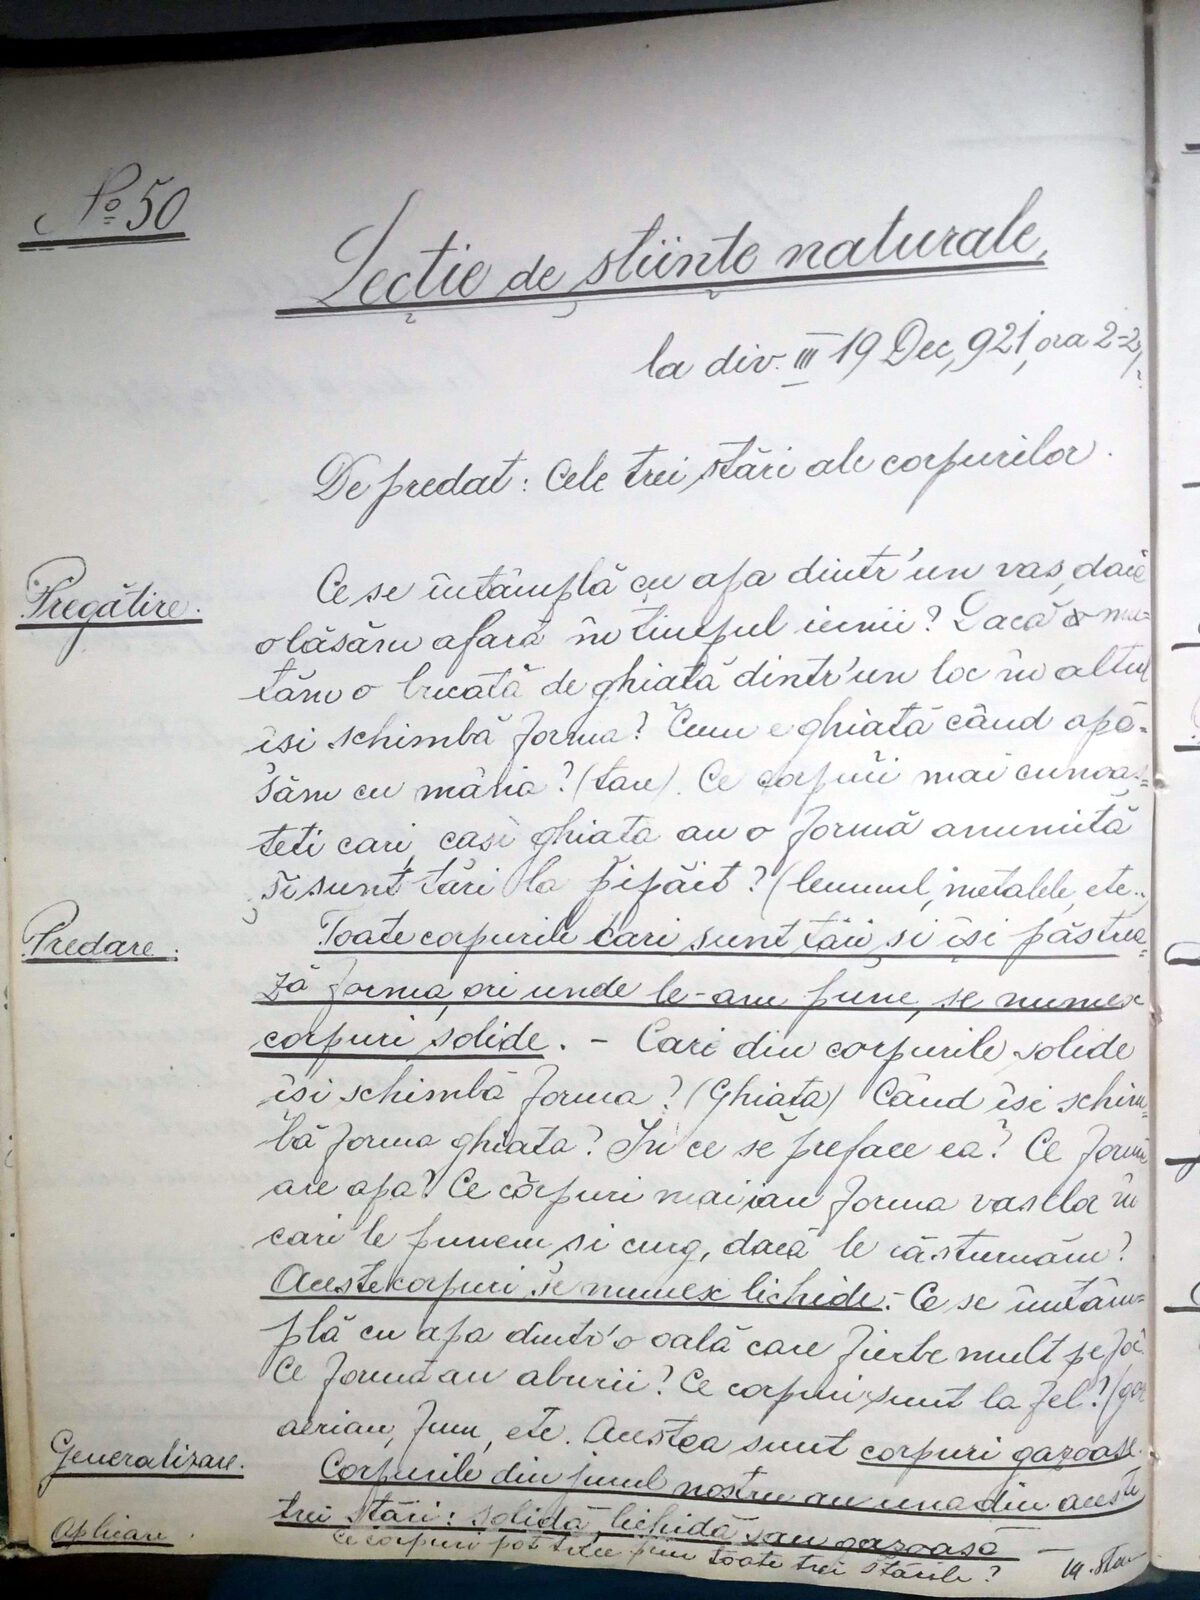 No 50
Lecție de științe naturale,
la div. III 19 Dec, 921, ora 2-2 1/2
De predat: Cele trei stări ale corpurilor.
Pregătire.
Ce se întâmplă cu apa dintr'un vas, dacă
o lăsăm afară în timpul iernii? Dacă mu=
tăm o bucată de ghiață dintr'un loc în altul
își schimbă forma? Cum e ghiață când apă-
săm cu mâna? (tare). Ce corpuri mai cunoaș=
teți cari, cași ghiața au o formă anumită
și sunt tări la pipăit? (lemnul, metalele, etc..
Predare.
Toate corpurile cari sunt tări, și își păstrea=
ză forma, ori unde le-am pune, se numesc
corpuri solide. - Cari din corpurile solide
își schimbă forma? (Ghiața) Când își schim=
bă forma ghiața? În ce se preface ea? Ce formă
are apa? Ce corpuri mai iau forma vaselor în
cari le punem și curg, dacă le răsturnăm?
Aceste corpuri se numesc lichide. - Ce se întâm=
plă cu apa dintr'o oală care fierbe mult pe foc.
Ce formă au aburii? Ce corpuri sunt la fel? (gaz
aerian, fum, etc. Acestea sunt corpuri gazoase.
Generalizare.
Corpurile din jurul nostru au una din aceste
trei stări: solidă, lichidă sau gazoasă -
Aplicare.
Ce corpuri pot trece prin toate trei stările?